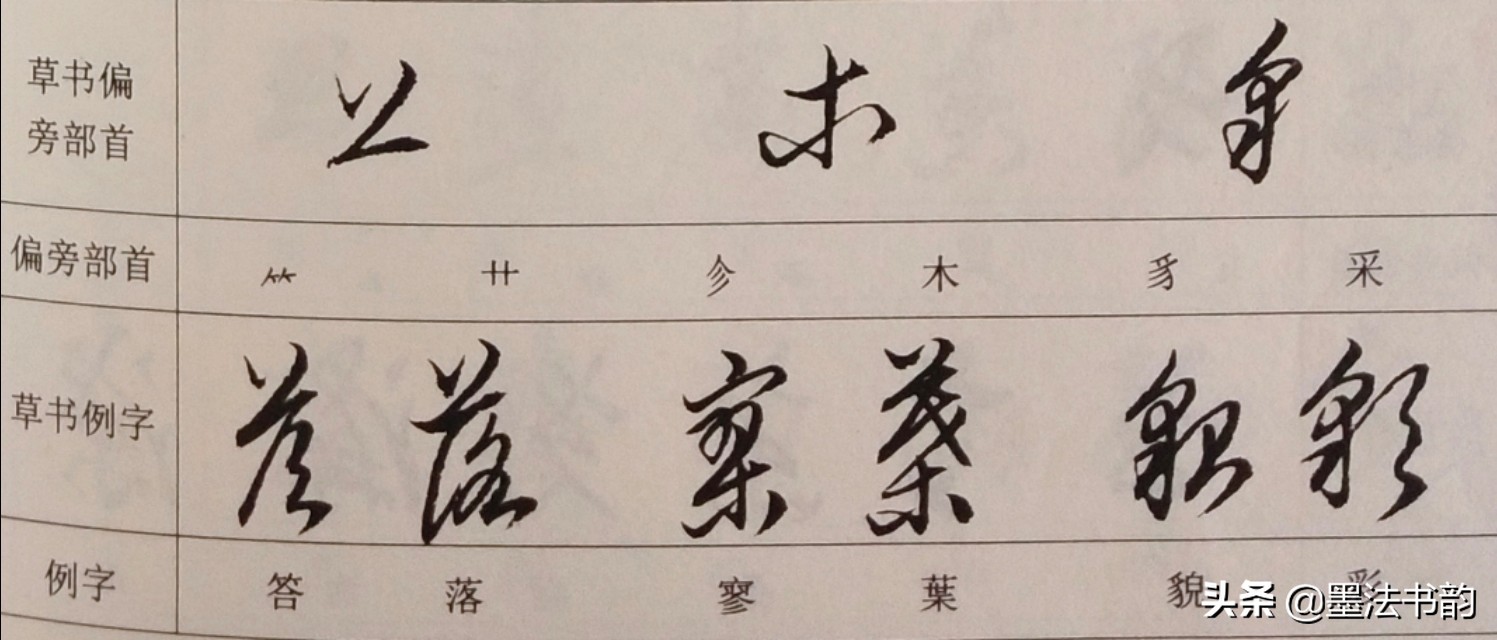 草书偏
旁部首
偏旁部首 𥫗 艹 㐱 木 豸 采
草书例字 答 落 寥 葉 貌 彩
例字 答 落 寥 葉 貌 彩
头条 @墨法书韵